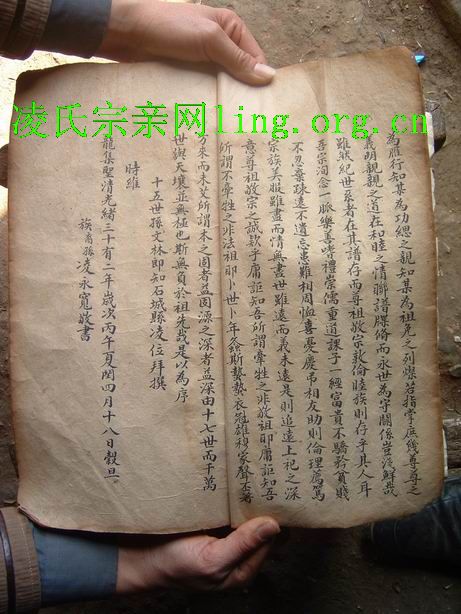 凌氏宗亲网ling.org.cn
為雁行知某為功緦之親知某為祖免之列燦若指掌庶幾尊尊之
義明親親之道在和睦之情聯譜牒脩而永世為守關係豈淺鮮哉
雖然紀世系者在其譜存而尊祖敬宗敦倫睦族則存乎其人耳
吾宗洵念一脈樂善嗜禮崇儒重道課子一經富貴不驕矜貧賤
不忍棄疎遠不遺忘患難相周恤喜憂慶吊相友助則倫理為篤
宗族美服雖盡而情無盡世雖遠而義未遠是則追遠上祀之深
意尊祖敬宗之誠歟乎庸詎知吾所謂牽牲之非敬祖耶庸詎知吾
所謂不牽牲之非法祖耶卜世卜年螽斯蟄蟄衣冠雄稱家聲丕著
方來而未艾所謂木之固者益固源之深者益深由十七世而千萬
世與天壤並無極也斯無負於祖先哉是以為序
時維
十五世孫文林郎知石城縣凌位拜撰
龍集聖清光緒三十有二年歲次丙午夏閏四月十八日榖旦。
族裔孫凌永寬敬書